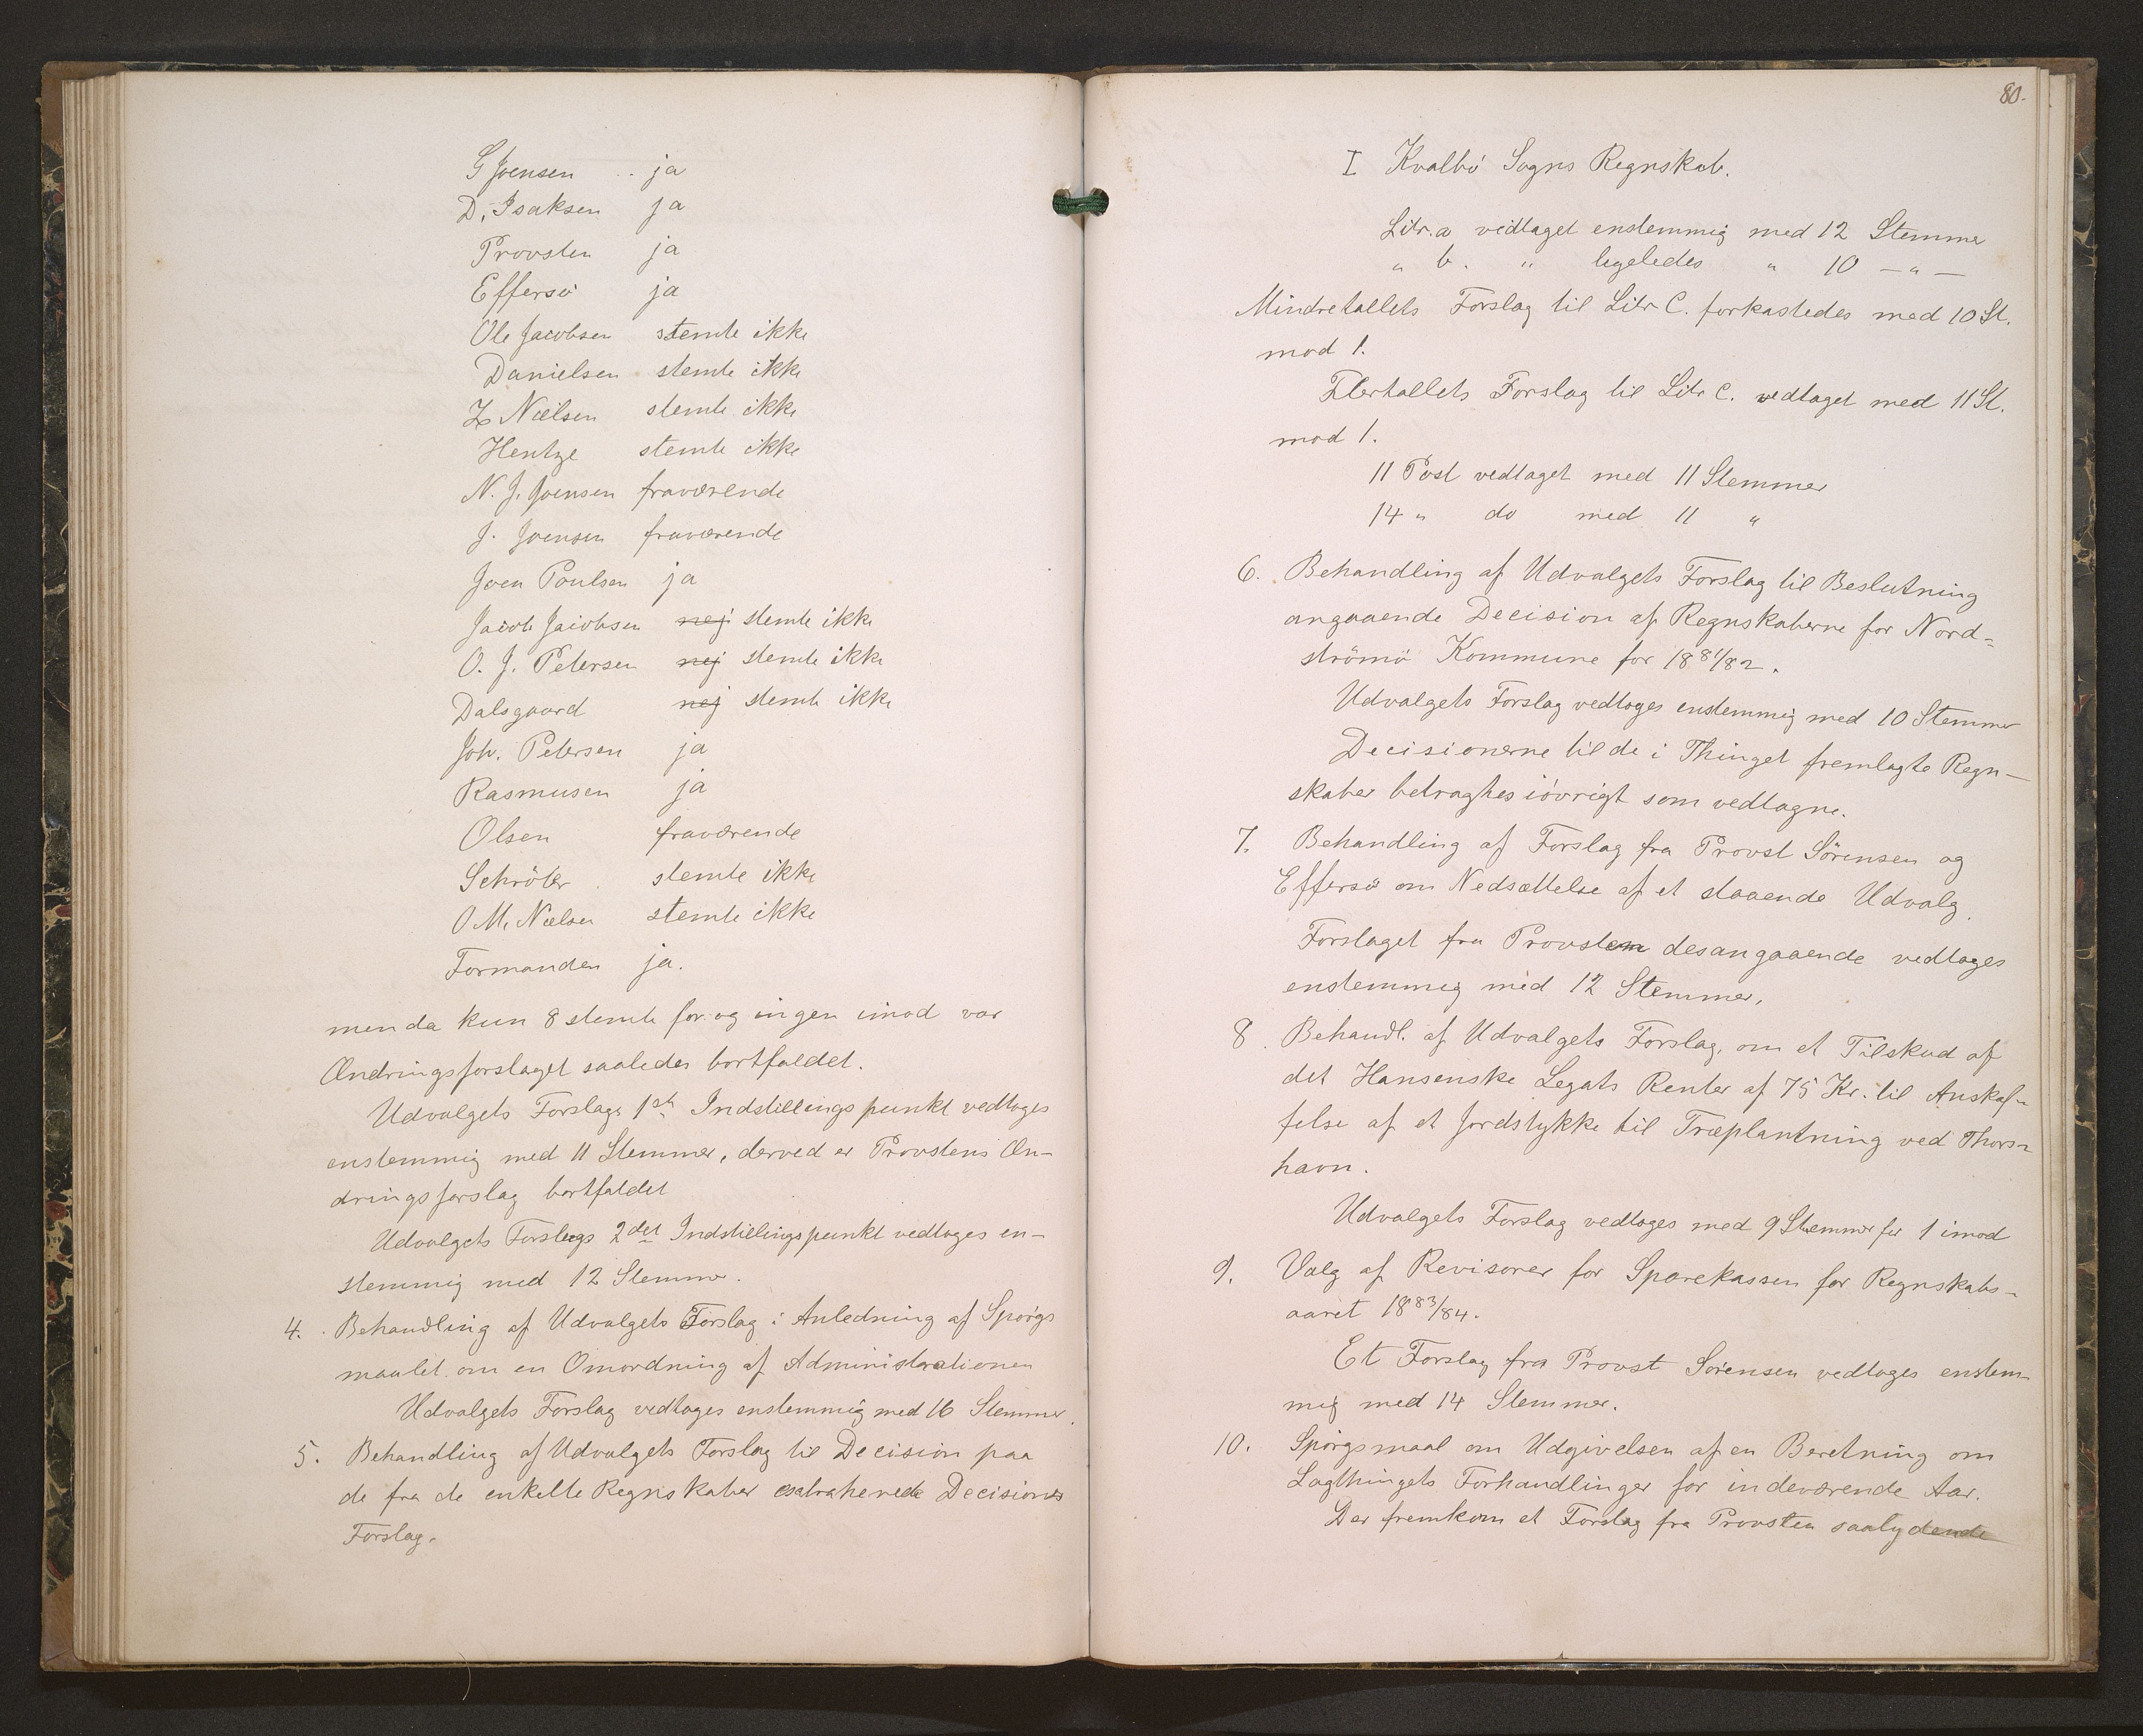 G Joensen .. ja
D. Isaksen ja
Provsten ja
Effersö ja
Ole Jacobsen stemte ikke
Danielsen stemte ikke
Z Nielsen stemte ikke
Hentze stemte ikke
N. J. Joensen fraværende
J. Joensen fraværende
Joen Poulsen ja
Jacob Jacobsen nej stemte ikke
O. J. Petersen nej stemte ikke
Dalsgaard nej stemte ikke
Joh. Petersen ja
Rasmusen ja
Olsen fraværende
Schröter stemte ikke
O M. Nielsen stemte ikke
Formanden ja.
men da kun 8 stemte for og ingen imod var
Ændringsforslaget saaledes bortfaldet.
Udvalgets Forslags 1ste Indstillingspunkt vedtoges
enstemmig med 11 Stemmer, derved er Provstens Æn-
dringsforslag bortfaldet
Udvalgets Forslags 2det Indstillingspunkt vedtoges en-
stemmig med 12 Stemmer.
4. Behandling af Udvalgets Forslag i Anledning af Spörgs
maalet om en Omordning af Administrationen
Udvalgets Forslag vedtoges enstemmig med 16 Stemmer.
5. Behandling af Udvalgets Forslag til Decision paa
de fra de enkelte Regnskaber extraherede Decisions
Forslag.
80.
I Kvalbö Sogns Regnskab.
Litr. a vedtaget enstemmig med 12 Stemmer
" b. " ligeledes " 10 — " —
Mindretallets Forslag til Litr C. forkastedes med 10 St.
mod 1.
Flertallets Forslag til Litr C. vedtaget med 11 St.
mod 1.
11 Post vedtaget med 11 Stemmer
14 " do med 11 "
6. Behandling af Udvalgets Forslag til Beslutning
angaaende Decision af Regnskaberne for Nord=
strömö Kommune for 1881/82.
Udvalgets Forslag vedtoges enstemmig med 10 Stemmer
Decisionerne til de i Thinget fremlagte Regn-
skaber betragtes iövrigt som vedtagne.
7. Behandling af Forslag fra Provst Sörensen og
Effersö om Nedsættelse af et staaende Udvalg.
Forslaget fra Provsten desangaaende vedtoges
enstemmig med 12 Stemmer.
8. Behandl. af Udvalgets Forslag, om et Tilskud af
det Hansenske Legats Renter af 75 Kr. til Anskaf-
felse af et Jordstykke til Træplantning ved Thors-
havn.
Udvalgets Forslag vedtoges med 9 Stemmer for 1 imod
9. Valg af Revisorer for Sparekassen for Regnskabs-
aaret 1883/84.
Et Forslag fra Provst Sörensen vedtoges enstem-
mig med 14 Stemmer.
10. Spörgsmaal om Udgivelsen af en Beretning om
Lagthingets Forhandlinger for indeværende Aar.
Der fremkom et Forslag fra Provsten saalydende